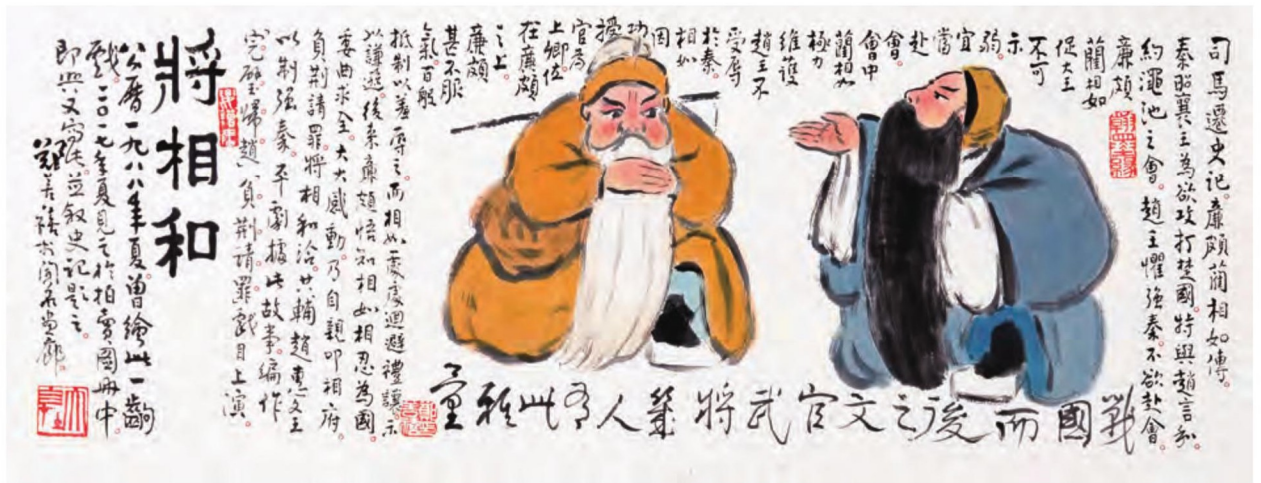 司馬遷史記。廉頗藺相如傳。
秦昭襄王為欲攻打楚國。特與趙言和
約澠池之會。趙王懼強秦。不欲赴會。
廉頗
藺相如
促大王
不可
示
弱。
宜
當
赴
會。
會中
藺相如
極力
維護
趙王不
受辱
於秦。
相如
因
功
擢
官為
上卿。位
在廉頗
之上
廉頗
甚不服
氣。百般
抵制以羞辱之。而相如處處迴避禮讓示
以謙遜。後來廉頗悟知相如相忍為國
委曲求全。大大感動。乃自親叩相府。
負荊請罪。將相和洽。共輔趙惠文王
以制強秦。平劇據此故事。編作
完璧歸趙、負荊請罪戲目上演。
將相和
公曆一九八八年夏。曾繪此一齣
戲。二〇一七年夏見之於拍賣圖冊中。
即興又寫此。並敘史記題之。
鄭善禧於
戰國而後之文官武將幾人有此雅量